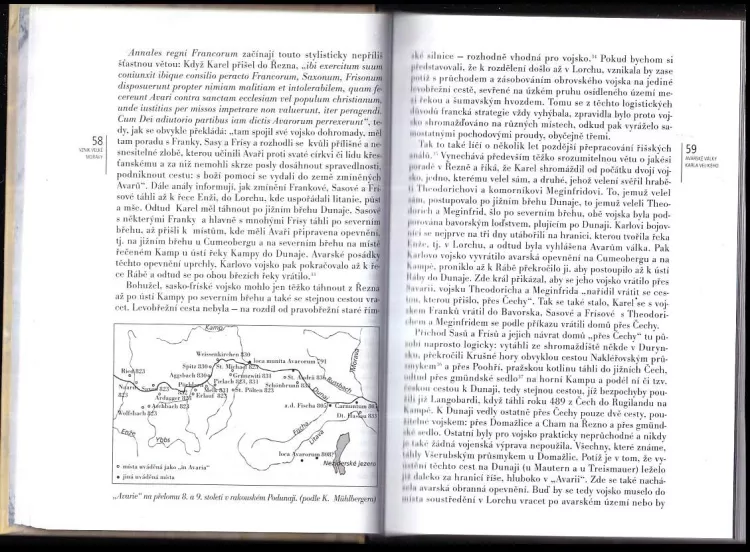 Annales regni Francorum začínají touto stylisticky nepříliš
šťastnou větou: Když Karel přišel do Řezna, „ibi exercitum suum
coniunxit ibique consilio peracto Francorum, Saxonum, Frisonum
disposuerunt propter nimiam malitiam et intolerabilem, quam fe-
cereunt Avari contra sanctam ecclesiam vel populum christianum,
unde iustitias per missos impetrare non valuerunt, iter peragendi.
Cum Dei adiutorio partibus iam dictis Avarorum perrexerunt“, te-
dy, jak se obvykle překládá: „tam spojil své vojsko dohromady, měl
tam poradu s Franky, Sasy a Frísy a rozhodli se kvůli přílišné a ne-
snesitelné zlobě, kterou učinili Avaři proti svaté církvi či lidu křes-
ťanskému a za niž nemohli skrze posly dosáhnout spravedlnosti,
podniknout cestu: s boží pomocí se vydali do země zmíněných
Avarů“. Dále anály informují, jak zmínění Frankové, Sasové a Frí-
sové táhli až k řece Enži, do Lorchu, kde uspořádali litanie, půst
a mše. Odtud Karel měl táhnout po jižním břehu Dunaje, Sasové
s některými Franky a hlavně s mnohými Frísy táhli po severním
břehu, až přišli k místům, kde měli Avaři připravena opevnění,
tj. na jižním břehu u Cumeobergu a na severním břehu na místě
řečeném Kamp u ústí řeky Kampy do Dunaje. Avarské posádky
těchto opevnění uprchly. Karlovo vojsko pak pokračovalo až k ře-
ce Rábě a odtud se po obou březích řeky vrátilo.
Bohužel, sasko-fríské vojsko mohlo jen těžko táhnout z Řezna
až po ústí Kampy po severním břehu a také se stejnou cestou vra-
cet. Levobřežní cesta nebyla – na rozdíl od pravobřežní staré řím-
58
VZNIK VELKÉ
MORAVY
Kamp
Weissenkirchen 830
loca munita Avarorum 791
Spitz 830
St. Michael 823
Aggsbach 830
Grunzwiti 830
Ried 823
Pielach 823, 831
St. Andrä 830
Schönbrunn 830
Melk 831
St. Pölten 823
Erlauf 823
Ardagger 823
Aschbach 823
Wolfsbach 823
a.d. Fischa 805
Carnuntum 805
Morava
Russbach
Dunaj
Enže
Ybbs
Fischa
Litava
loca Avarorum 808?
Neziderské jezero
místa uváděná jako „in Avaria“
jiná uváděná místa
„Avarie“ na přelomu 8. a 9. století v rakouském Podunají. (podle K. Mühlbergera)
ské silnice – rozhodně vhodná pro vojsko. Pokud bychom si
představovali, že k rozdělení došlo až v Lorchu, vznikala by zase
potíž s průchodem a zásobováním obrovského vojska na jediné
levobřežní cestě, sevřené na úzkém pruhu osídleného území me-
zi řekou a šumavským hvozdem. Tomu se z těchto logistických
důvodů francká strategie vždy vyhýbala, zpravidla bylo proto voj-
sko shromažďováno na různých místech, odkud pak vyráželo sa-
mostatnými pochodovými proudy, obyčejně třemi.
Tak to také líčí o několik let později přepracování říšských
análů. Vynechává především těžko srozumitelnou větu o jakési
poradě v Řezně a říká, že Karel shromáždil od počátku dvojí voj-
sko, jedno, kterému velel sám, a druhé, jehož velení svěřil hrabě-
ti Theodorichovi a komorníkovi Meginfridovi. To, jemuž velel
sám, postupovalo po jižním břehu Dunaje, to jemuž veleli Theo-
dorich a Meginfrid, šlo po severním břehu, obě vojska byla pod-
porována bavorským loďstvem, plujícím po Dunaji. Karlovi bojov-
níci se nejprve na tři dny utábořili na hranici, kterou tvořila řeka
Enže, tj. v Lorchu, a odtud byla vyhlášena Avarům válka. Pak
Karlovo vojsko vyvrátilo avarská opevnění na Cumeobergu a na
Kampě, proniklo až k Rábě překročilo ji, aby postoupilo až k ústí
Ráby do Dunaje. Zde král přikázal, aby se jeho vojsko vrátilo přes
Savarii, vojsku Theodoricha a Meginfrida „nařídil vrátit se ces-
tou, kterou přišlo, přes Čechy“. Tak se také stalo, Karel se s voj-
skem Franků vrátil do Bavorska, Sasové a Frísové s Theodori-
chem a Meginfridem se podle příkazu vrátili domů přes Čechy.
Příchod Sasů a Frísů a jejich návrat domů „přes Čechy“ tu pů-
sobí naprosto logicky: vytáhli ze shromaždiště někde v Duryn-
sku, překročili Krušné hory obvyklou cestou Nakléřovským prů-
smykem a přes Poohří, pražskou kotlinu táhli do jižních Čech,
odtud přes gmündské sedlo na horní Kampu a podél ní či tzv.
českou cestou k Dunaji, tedy stejnou cestou, již bezpochyby pou-
žili již Langobardi, když táhli roku 489 z Čech do Rugilandu na
Kampě. K Dunaji vedly ostatně přes Čechy pouze dvě cesty, pou-
žitelné vojskem: přes Domažlice a Cham na Řezno a přes gmünd-
ské sedlo. Ostatní byly pro vojsko prakticky neprůchodné a nikdy
je také žádná vojenská výprava nepoužila. Všechny, které známe,
táhly Všerubským průsmykem u Domažlic. Potíž je v tom, že vy-
ústění těchto cest na Dunaji (u Mautern a u Treismauer) leželo
již daleko za hranicí říše, hluboko v „Avarii“. Zde se také nachá-
zela avarská obranná opevnění. Buď by se tedy vojsko muselo do
místa soustředění v Lorchu vracet po avarském území nebo by
59
AVARSKÉ VÁLKY
KARLA VELIKÉHO